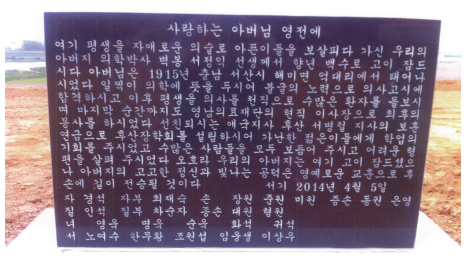 사랑하는 아버님 영전에
여기 평생을 자애로운 의술로 아픈이들을 보살피다 가신 우리의
아버지 의학박사 벽봉 서정의 선생께서 향년 백수로 고이 잠드
시다 아버님은 1915년 충남 서산시 해미면 억대리에서 태어나
시었다 일찍이 의학에 뜻을 두시어 불굴의 노력으로 의사고시에
합격하시고 이후 평생을 의사를 천직으로 수많은 환자를 돌보시
며 마지막 순간까지도 의 현직 이사장으로 최후의
봉사를 하시었다 선친되시는 애국지사 후산 서병철 지사의 보훈
연금으로 후산장학회를 설립하시어 가난한 젊은이들에게 학업의
기회를 주시었고 수많은 사람들을 모두 보듬어 주시고 어려운 형
편을 살펴 주시었다 오호라 우리의 아버지는 여기 고이 잠드셨으
나 아버지의 고고한 정신과 빛나는 공덕은 영예로운 교훈으로 후
손에 길이 전승될 것이다 서기 2014년 4월 5일
자 경석 자부 최재숙 손 장원 준원 미원 증손 동권 은영
질 인석 질부 차순자 종손 대원 형원
녀 영옥 명옥 순옥 화석 귀석
서 노여수 한무황 조원섭 임웅생 이상우